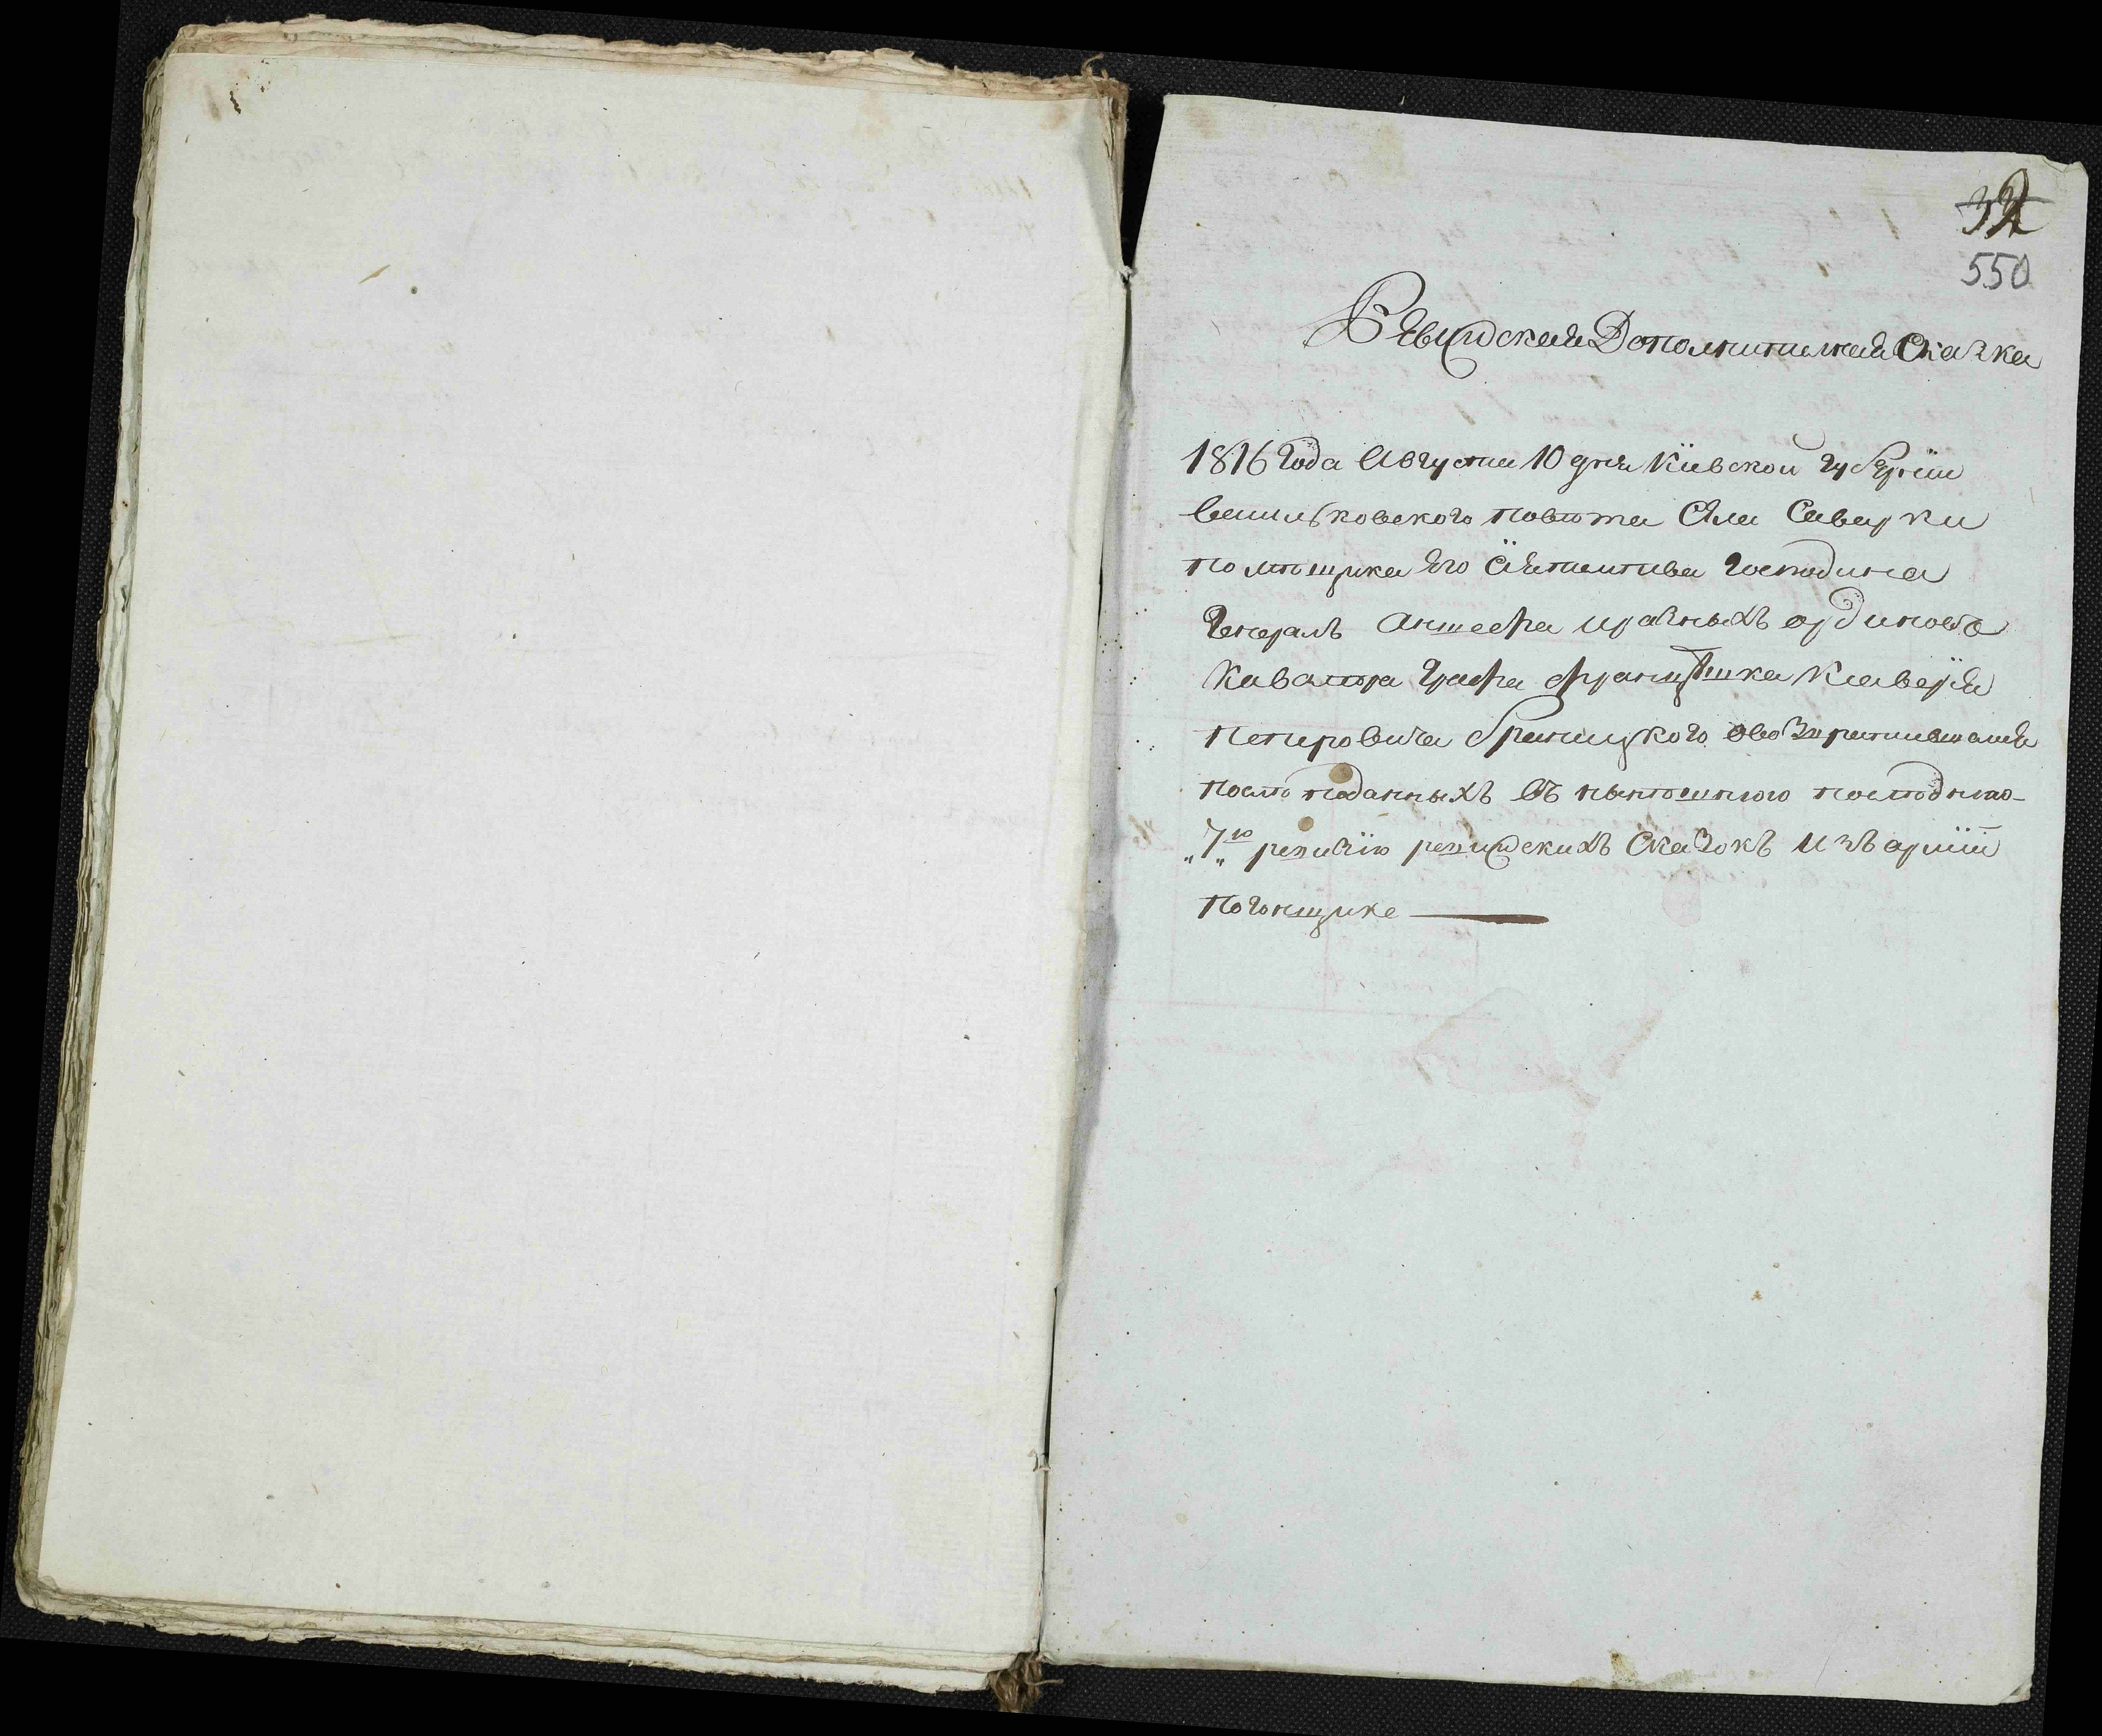 32
550
Ревизская Дополнительная Сказка
1816 Года Августа 10 дня Кіевской губерніи
василковского повѣта Села Саварки
помѣщика Его Сіятелства Господина
Генералъ Аншефа и разныхъ орденовъ
Кавалѣра Графа Францѣшка Ксаверія
Петровича Браницкого о возвратившемся
послѣ поданныхъ въ нынѣшнюю последнюю
„7ю„ ревизію ревизскихъ Сказокъ Изъ арміи
погонщике